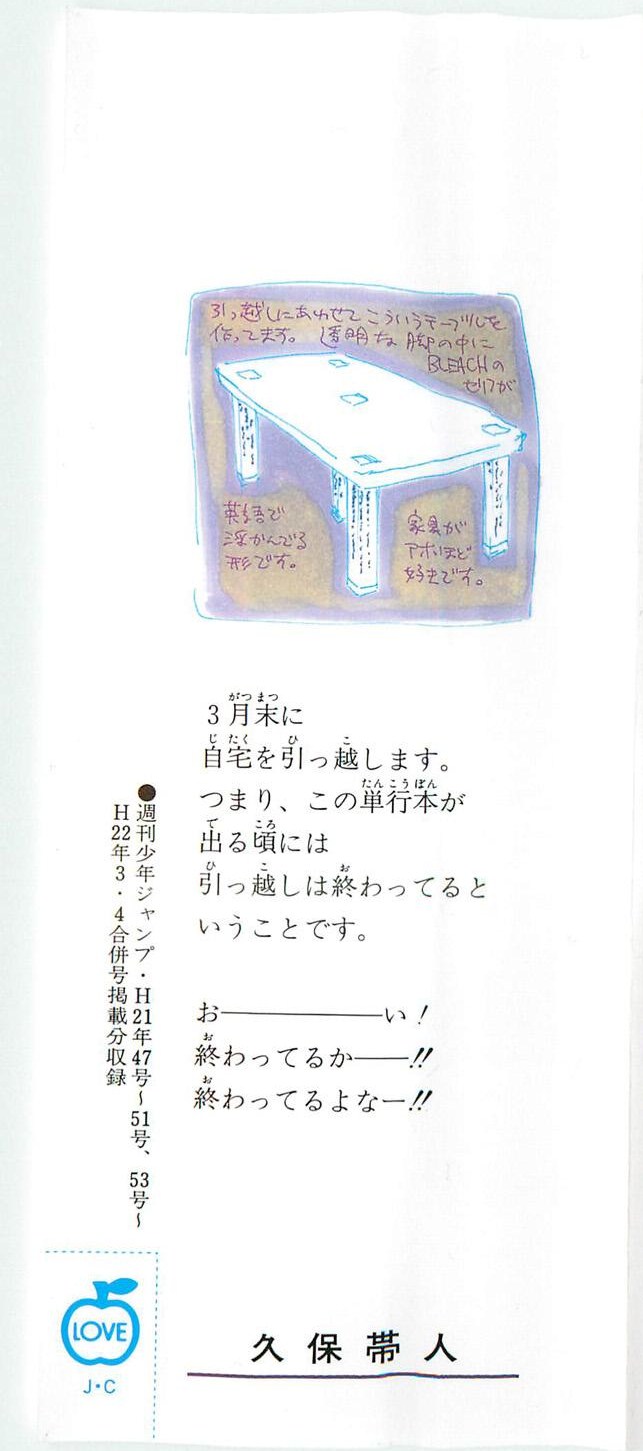 引っ越しにあわせてこういうテーブルを
作ってます。透明な脚の中に
BLEACHの
セリフが
英語で
浮かんでる
形です。
家具が
アホほど
好きです。
3月末に
自宅を引っ越します。
つまり、この単行本が
出る頃には
引っ越しは終わってると
いうことです。
お――――――い!
終わってるか――!!
終わってるよなー!!
●週刊少年ジャンプ・H21年47号~51号、53号~
H22年3・4合併号掲載分収録
LOVE
J・C
久保帯人